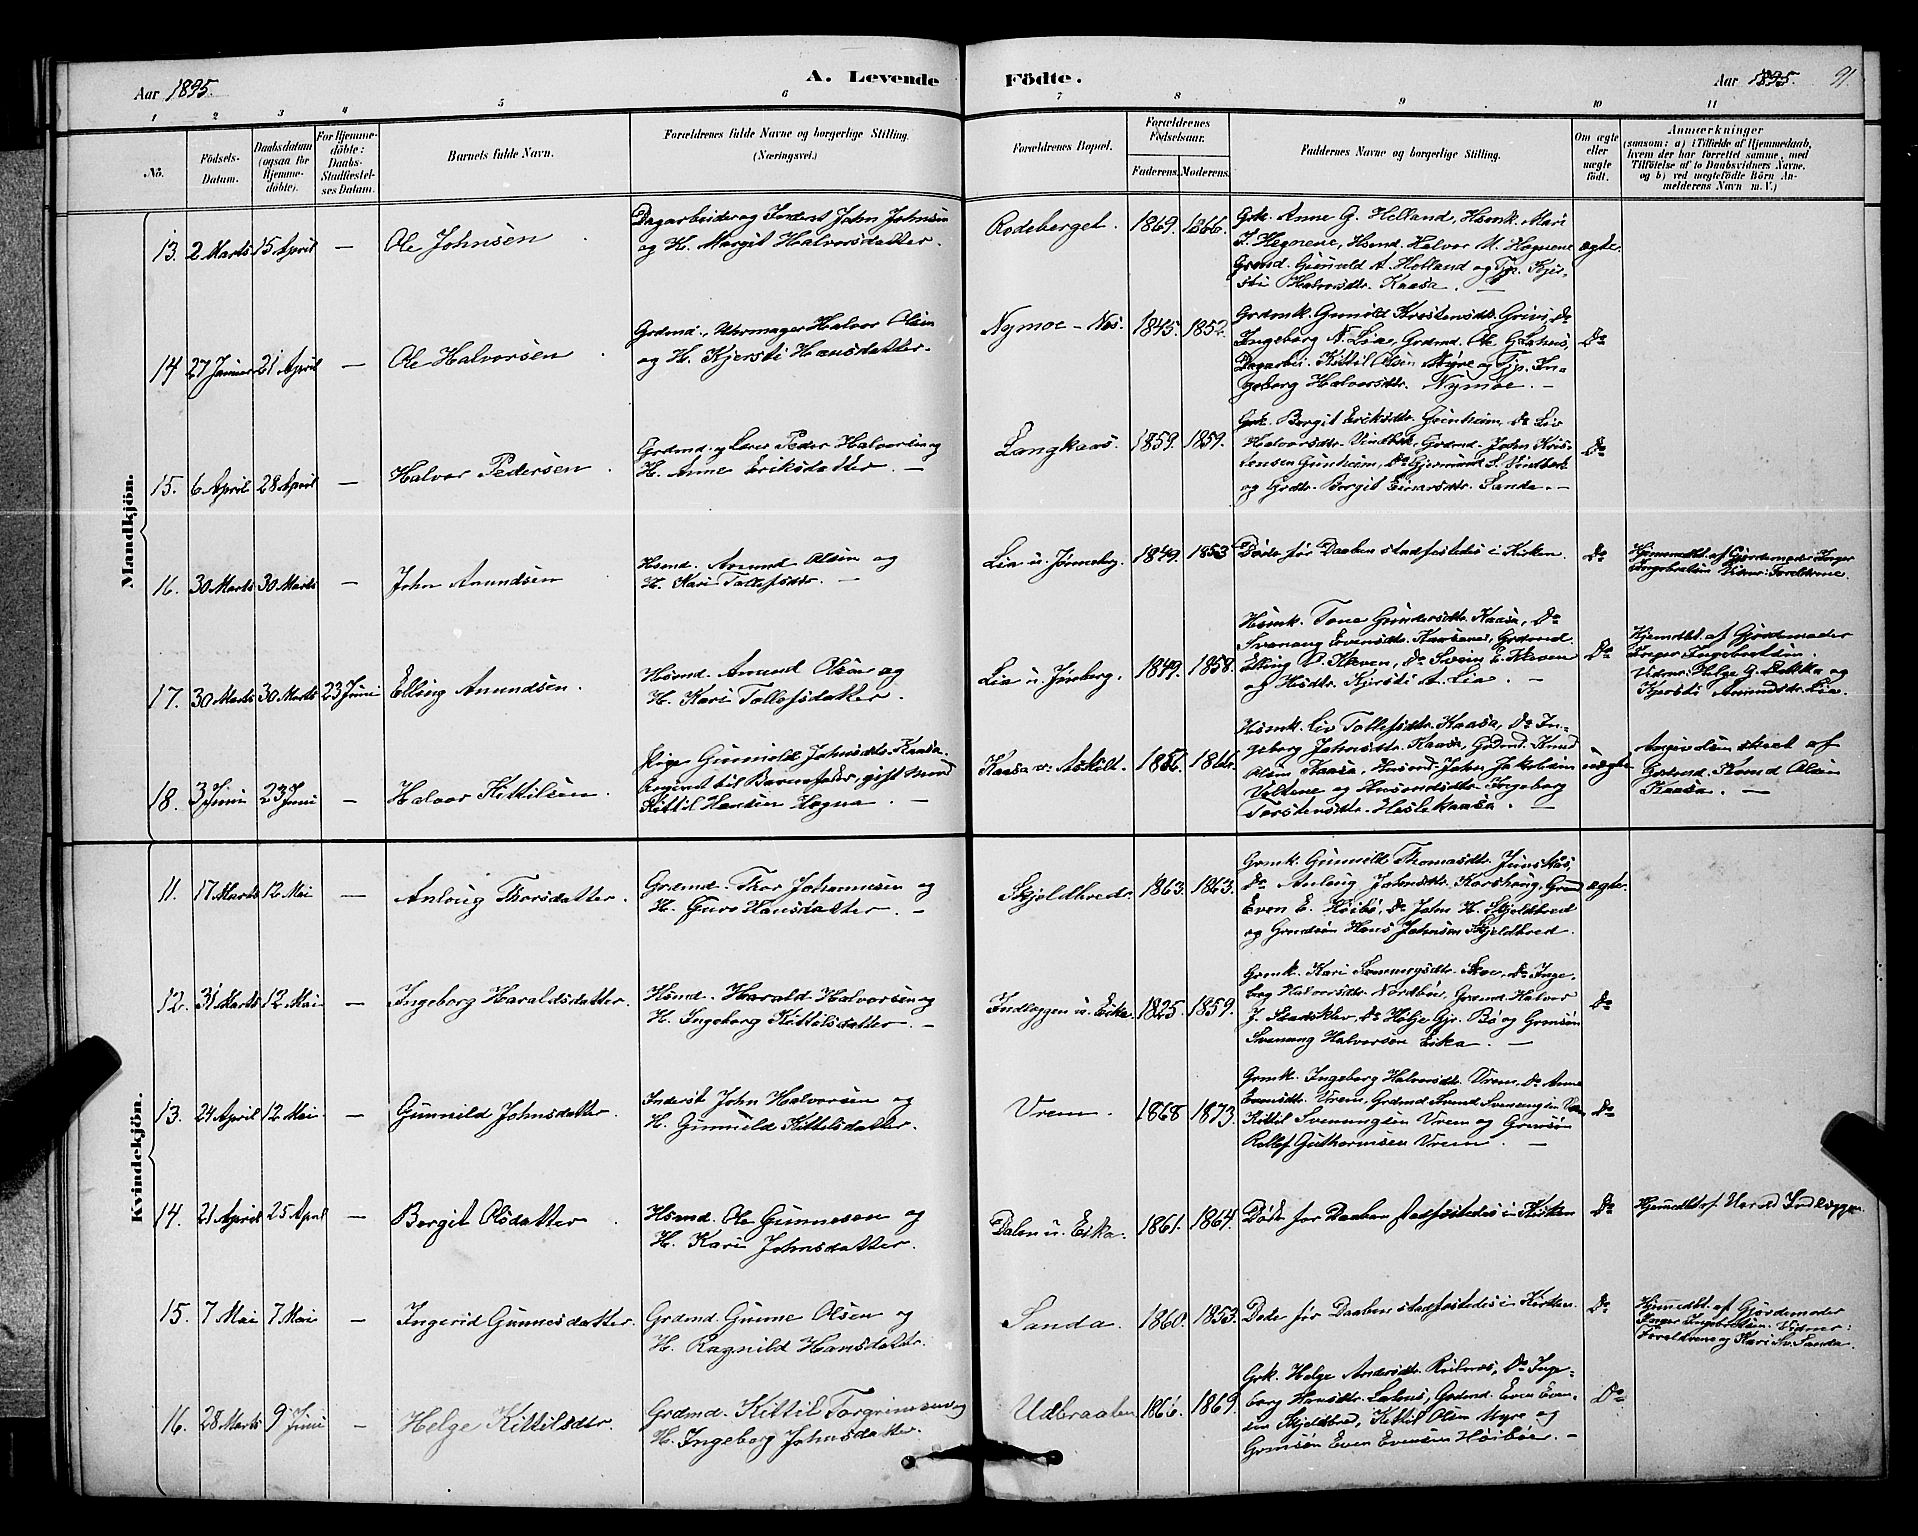 Aar 1895.
A. Levende Födte.
Aar 1895. 91.
1 2 3 4 5 6 7 8 9 10 11
No.
Födsels-Datum.
Daabsdatum (ogsaa for Hjemmedöbte).
For Hjemmedöbte: Daabs-Stadfæstelses Datum.
Barnets fulde Navn.
Forældrenes fulde Navne og borgerlige Stilling. (Næringsvei.)
Forældrenes Bopæl.
Forældrenes Födselsaar.
Faderens. Moderens.
Faddernes Navne og borgerlige Stilling.
Om ægte eller uægte födt.
Anmærkninger
(saasom: a) i Tilfælde af Hjemmedaab,
hvem der har forrettet samme, med
Tilföielse af to Daabsvidners Navne,
og b) ved uægtefödte Börn An-
melderens Navn m. V.)
Mandkjön.
13. 2 Marts 15 April — Ole Johnsen
Dagarbeider og Inderst John Johnsen
og H. Margit Halvorsdatter.
Rodeberget. 1869. 1866.
Grk. Anne G. Helland, Hsmk. Mari
J. Hegnene, Hsmd. Halvor M. Hegnene
Grmd. Gunuld A. Helland og Tjp. Kjer-
sti Halvorsdtr. Kaasa. —
ægte.
14 27 Januar 21 April — Ole Halvorsen
Grdmd., Uhrmager Halvor Olsen
og H. Kjersti Hansdatter.
Nymoe - Nes. 1845. 1852.
Grdmk. Gunild Kristensdtr. Grivi, Do
Ingeborg N. Lia, Grdmd. Ole
Dagarbei. Kittil Olsen Myre og Tjp. In-
geborg Halvorsdtr. Nymoe. —
Do
15. 6 April 28 April — Halvor Pedersen
Grdmd. og Lærer Peder Halvorsen og
H. Anne Eriksdatter. —
Langkaas. 1859. 1859.
Grk. Bergit Eriksdtr. Grinheim, Do Liv
Halvorsdtr. Vindbek, Grdmd. John Kris-
tensen Gunheim, Do Gjermund S. Vindbek
og Grdtr. Bergit Einarsdtr. Sanda. —
Do
16. 30 Marts 30 Marts — John Amundsen
Hsmd. Amund Olsen og
H. Kari Tollefsdtr. —
Lia u. Jønneberg. 1849. 1853
Døde før Daaben stadfæstedes i Kirken.
Do
Hjemmedbt. af Gjordemoder Inger
Ingebretsen Vidner: Forældrene.
17. 30 Marts 30 Marts 23 Juni Elling Amundsen.
Hsmd. Amund Olsen og
H. Kari Tollefsdatter.
Lia u. Jønberg. 1849. 1858.
Hsmk. Tone Gundersdtr. Kaasa, Do
Svanaug Evensdtr. Kaasa, Grdmd.
Elling P. Kleven, Do Svein E. Kleven
og Hsdtr. Kjersti A. Lia. —
Do
Hjemdbt. af Gjordemoder
Inger Ingebretsen.
Vidner: Helge G. Dekka og
Kjersti Amundsdtr. Lia.
18. 3 Juni 23 Juni — Halvor Kittilsen.
Pige Gunnild Johnsdtr. Kaasa.
Angivet til Barnefader, gift Mand
Kittil Hansen Hegna. —
Kaasa v. Askilt. 1856. 1866.
Hsmk. Liv Tollefsdtr. Kaasa, Do In-
geborg Johnsdtr. Kaasa, Grdmd. Knud
Olsen Kaasa, Husmd. John Jakobsen
Voltene og Husmdsdtr. Ingeborg
Torstensdtr. Heslekaasa. —
uægte
Angivelsen skeet af
Grdmd. Knud Olsen
Kaasa. —
Kvindekjön.
11. 17 Marts 12 Mai — Anlaug Thorsdatter.
Grdmd. Thor Johannesen og
H. Guro Hansdatter. —
Skjoldbred. 1863. 1863.
Grmk. Gunnild Thomasdtr.
Do Anlaug Johnsdtr. Korshaug, Grmd
Even E. Høibø, Do John H. Skjeldbred
og Grmdsøn Hans Johnsen Skjeldbred.
ægte.
12. 31 Marts 12 Mai — Ingeborg Haraldsdatter.
Hsmd. Harald Halvorsen og
H. Ingeborg Kittilsdatter. —
Indleggen u. Eika. 1825. 1859.
Grmk. Kari Svenungsdtr. Stoe, Do Inge-
borg Halvorsdtr. Nordbøe, Grdmd. Halvor
J. Stadsklev, Do Helje Gjr. Bø og Grmsøn
Svenung Halvorsen Eika. —
Do
13. 24 April 12 Mai. — Gunnild Johnsdatter.
Inderst John Halvorsen og
H. Gunnild Kittilsdatter.
Vrem. 1868 1873.
Grmk. Ingeborg Halvorsdtr. Vrem, Do Anne
Evensdtr. Vrem, Grdmd Svend Svenungsen Vrem
Kittil Svenungsen Vrem og Grmsøn
Rollef Guthormsen Vrem. —
Do
14. 21 April 25 April — Bergit Olsdatter
Hsmd. Ole Gunnesen og
H. Kari Johnsdatter.
Dalen u. Eika. 1861. 1864.
Døde før Daaben stadfæstedes i Kirken
Do
Hjemdbt af Harald Indleggen.
15. 7 Mai 7 Mai — Ingerid Gunnesdatter.
Grdmd. Gunne Olsen og
H. Ragnild Hansdatter.
Sanda. 1860. 1853.
Døde før Daaben stadfæstedes i Kirken.
Do
Hjemmedbt. af Gjordemoder
Inger Ingebretsen. Vidner:
Forældrene og Kari Sv. Sanda.
16. 28 Marts 9 Juni — Helge Kittilsdtr.
Grdmd. Kittil Torgrimsen og
H. Ingeborg Johnsdatter.
Udbraaten 1866. 1869.
Grk. Helge Andersdtr. Reilnes, Do Inge-
borg Hansdtr. Lønnes, Grdmd. Even Even-
sen Skjeldbred, Kittil Olsen Myre og
Grmsøn Even Evensen Høibøe. —
Do